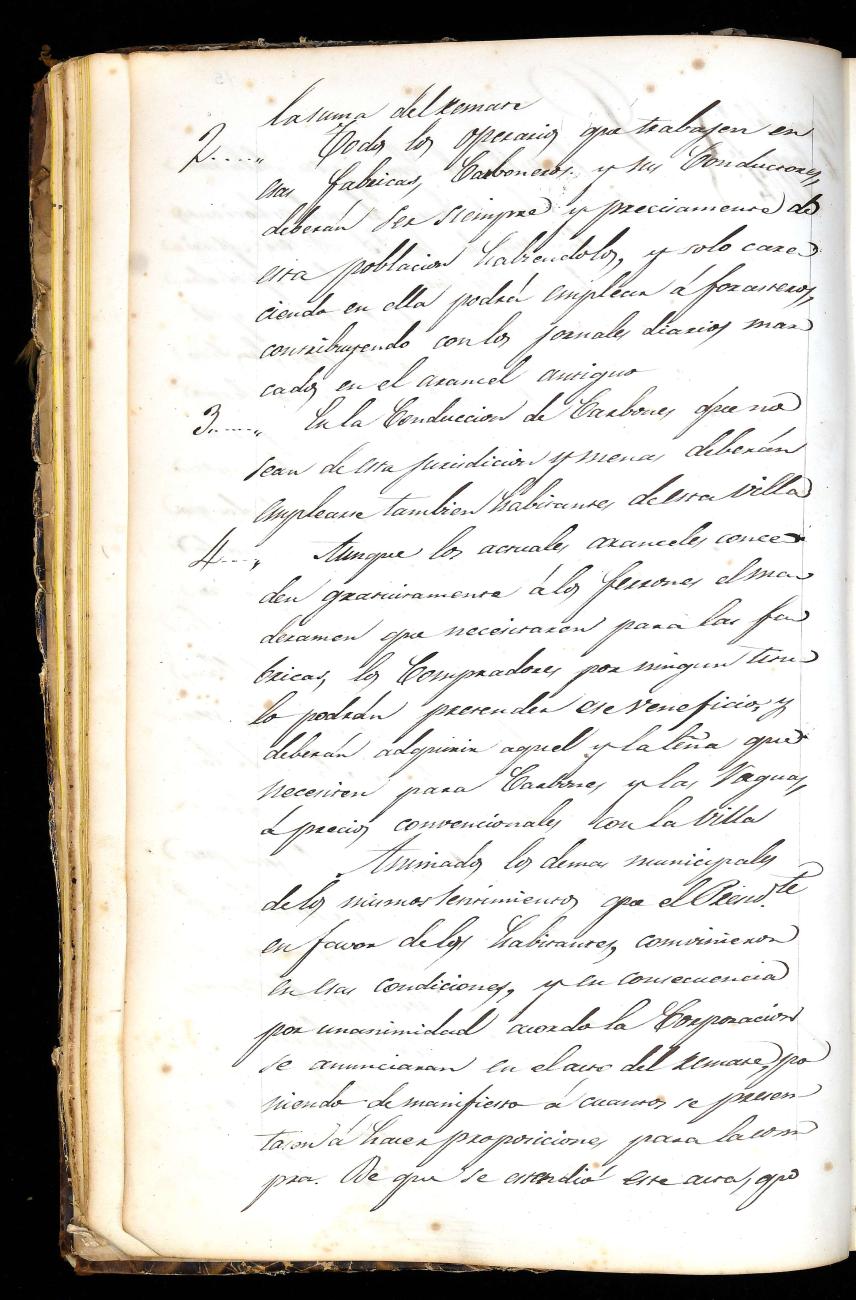 la suma del remate
2..... „ Todos los operarios que trabajen en
esas fabricas, Carboneros y sus Conductores,
deberán ser siempre y precisamente de
esta poblacion habiéndolos, y solo care
ciendo en ella podrá emplear á forasteros,
contribuyendo con los jornales diarios mar
cados en el arancel antiguo
3...... „ En la Conduccion de Carbones que no
sean de esta jurisdicion y menas deberán
emplearse tambien habitantes de esta villa
4.... „ Aunque los actuales aranceles conce
den gratuitamente á los ferrones el ma
deramen que necesitaren para las fa
bricas, los Compradores por ningun titu
lo podrán pretender ese veneficio, y
deberán adquirir aquel y la leña que
necesiten para Carbones y las Vraguas,
á precios convencionales con la Villa
Animados los demas municipales
de los mismos sentimientos que el Presid.te
en favor de los habitantes, convinieron
en esas condiciones, y en consecuencia
por unanimidad acordo la Corporacion
se anunciaran en el acto del remate, po
niendo de manifiesto á cuantos se presen
tasen á hacer proposiciones para la com
pra. De que se estendió este acta, que